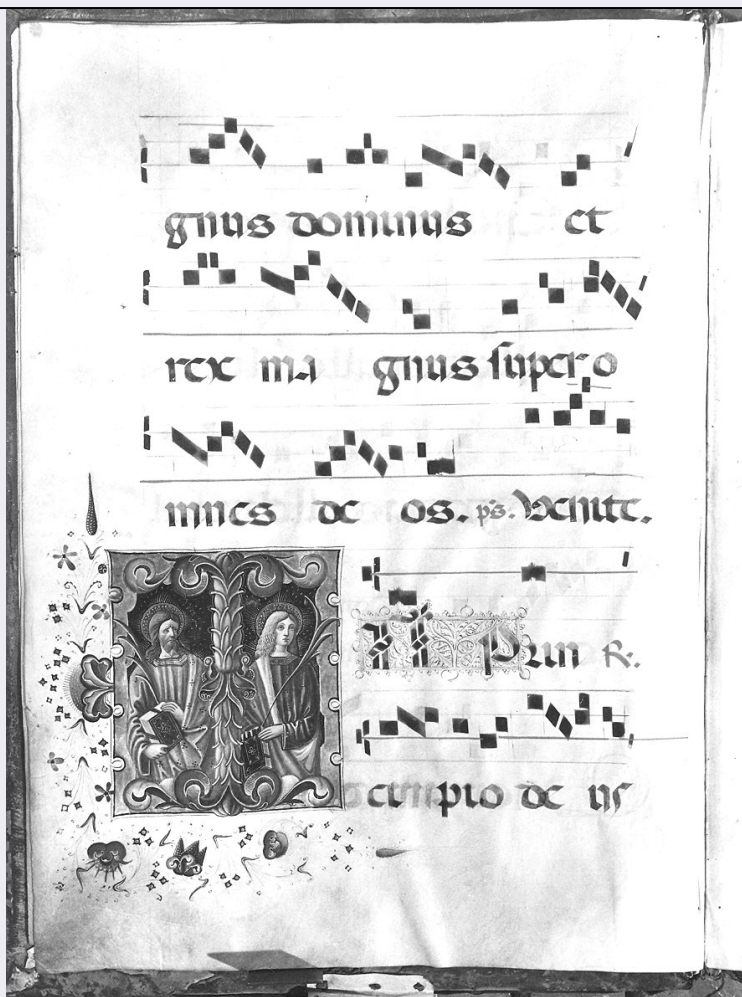 gnus dominus et
rex ma gnus super o
mnes de os. ps. Venite.
Prin R.
ci pio de us